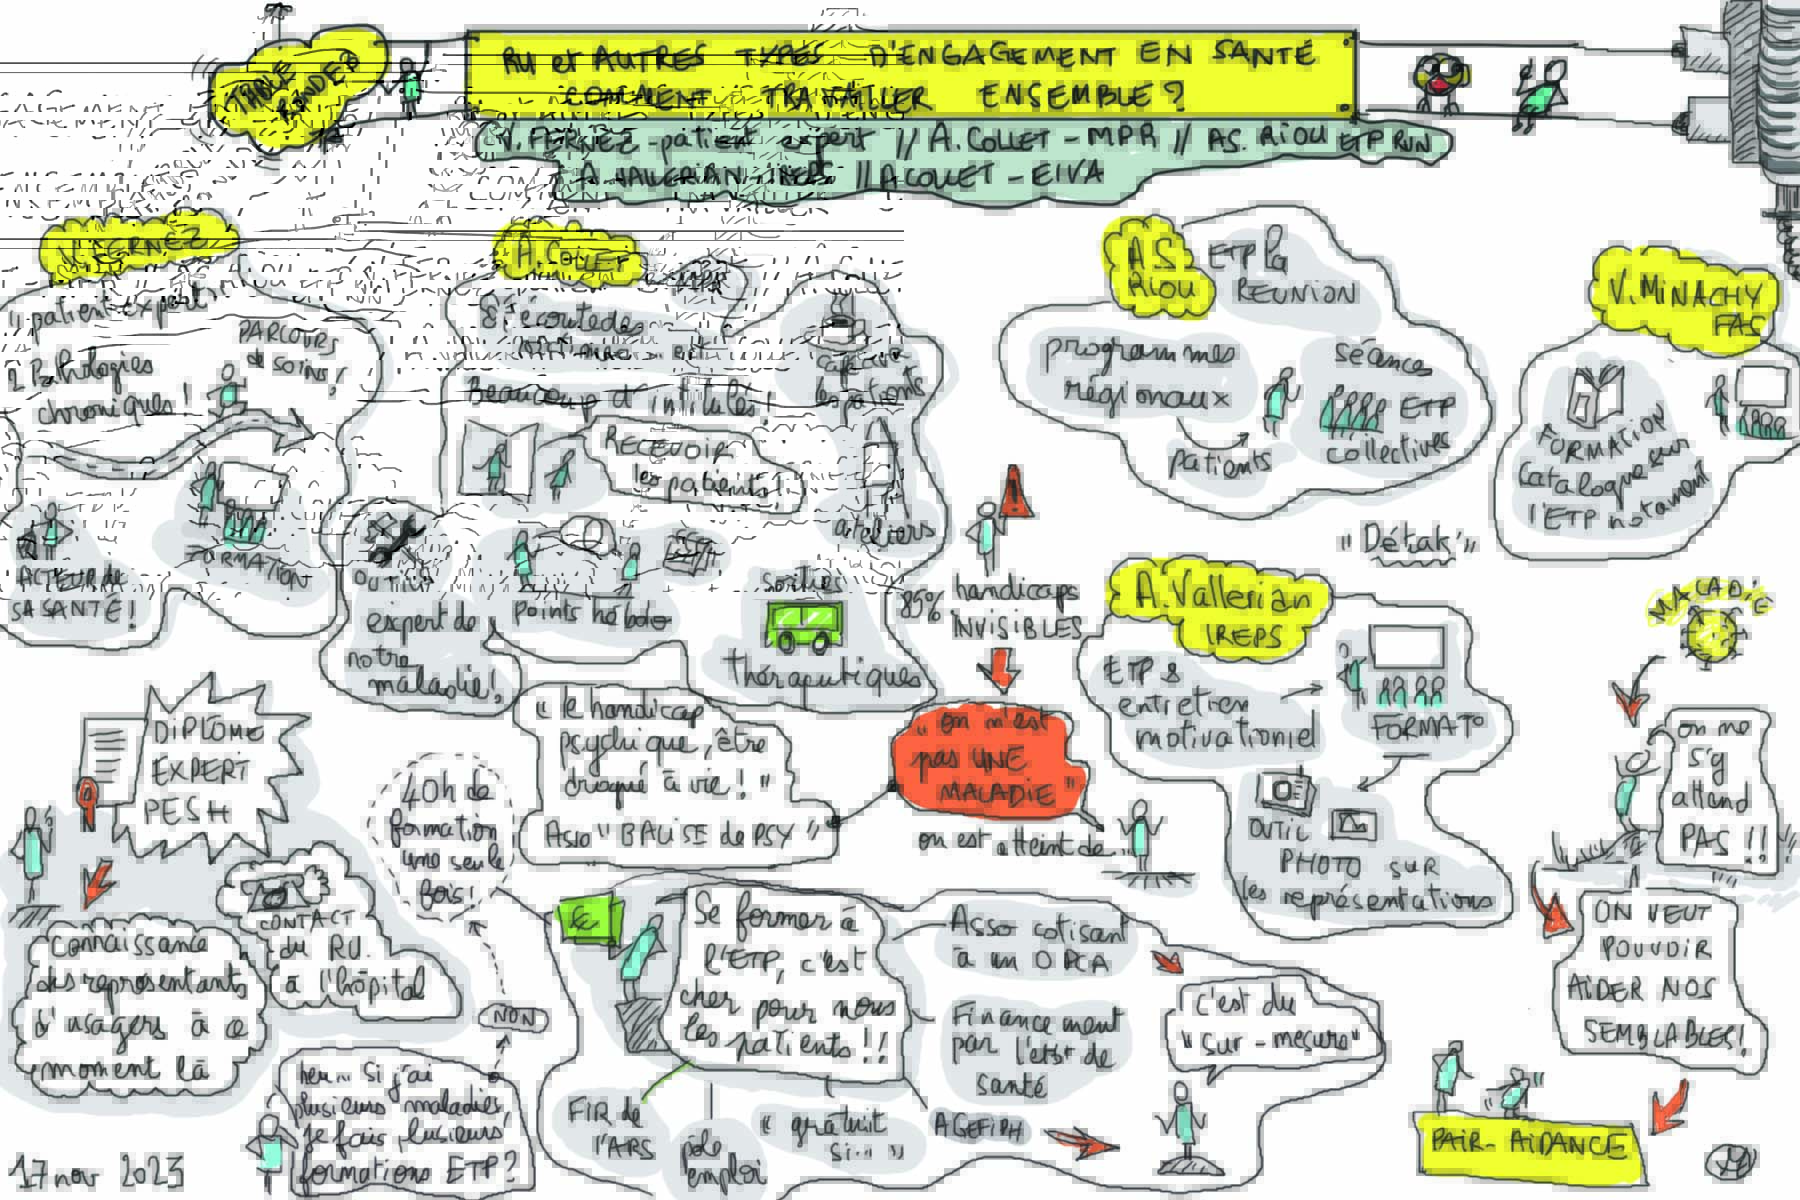 TABLE
RONDE 3
RU et AUTRES TYPES D'ENGAGEMENT EN SANTÉ
COMMENT TRAVAILLER ENSEMBLE ?
V. FERNEZ - patient expert // A. COLLET - MPR // AS. RIOU ETP RUN
A. VALLERIAN IREPS // A COLLET - EIVA
V. FERNEZ
patient expert
2 Pathologies
chroniques !
PARCOURS
de SOINS !
ACTEUR de
SA SANTÉ !
FORMATION
OUTILS
expert de
notre
maladie !
A. COLLET
MPR
écoute des
Beaucoup d'intitulés !
café
les patients
RECEVOIR
les patients !
ateliers
points hebdo
sorties
thérapeutiques
85% handicaps
INVISIBLES
A.S.
RIOU
ETP la
REUNION
programmes
régionaux
patients
séances
ETP
collectives
V. MINACHY
FAS
FORMATION
Catalogue sur
l'ETP notament
"Détak"
A. Vallerian
IREPS
ETP &
entretien
motivationnel
FORMAT°
OUTIL
PHOTO SUR
les représentations
MALADIE
on ne
s'y
attend
PAS !!
ON VEUT
POUVOIR
AIDER NOS
SEMBLABLES !
PAIR-AIDANCE
DIPLOME
EXPERT
PESH
connaissance
des représentants
d'usagers à ce
moment là
CONTACT
du RU.
à l'hôpital
40h de
formation
une seule
fois !
NON
heu... si j'ai
plusieurs maladies,
je fais plusieurs
formations ETP ?
"le handicap
psychique, être
croqué à vie ! "
Asso "BALISE de PSY"
"on n'est
pas UNE
MALADIE"
on est atteint de...
€
Se former à
l'ETP, c'est
cher pour nous
les patients !!
Asso cotisant
à un OPCA
Financement
par l'etst de
santé
c'est du
"sur-mesure"
FIR de
l'ARS
pôle
emploi
"gratuit
si... "
AGEFIPH
17 nov 2023